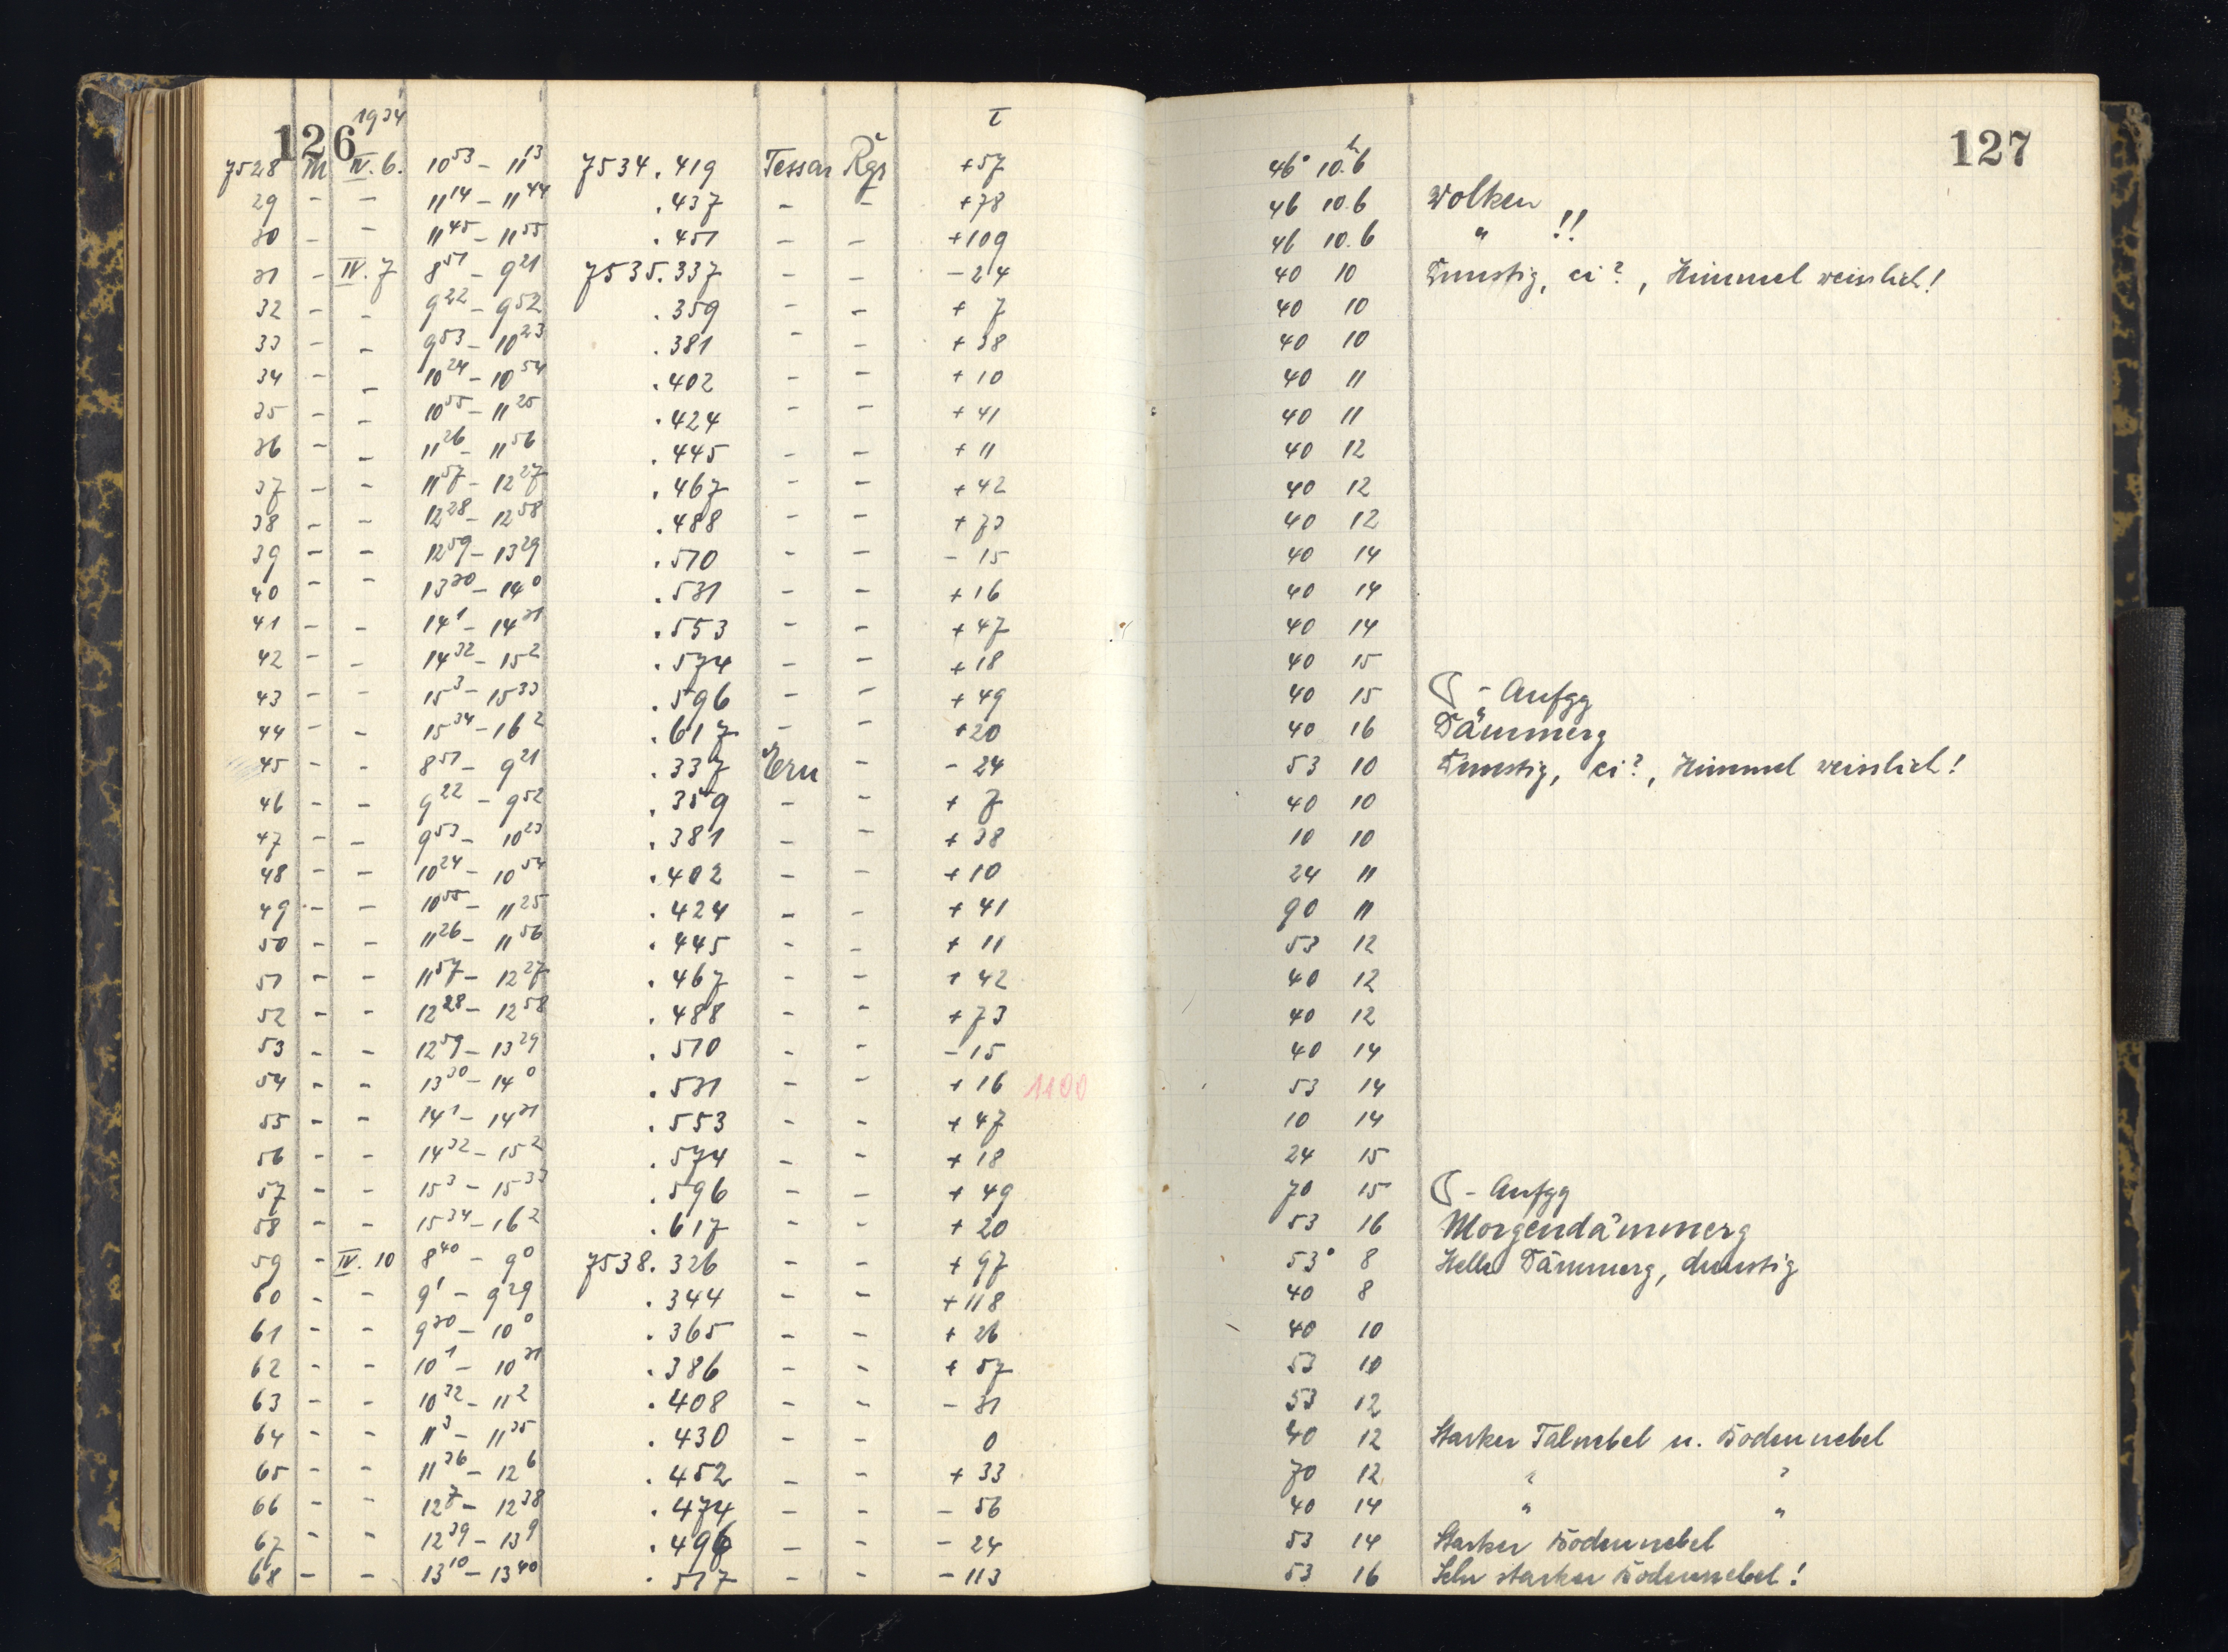 126 1934 τ
7528 M IV. 6. 10 53 – 11 13 7534 . 419 Tessar Rgs + 57
29 – – 11 14 – 11 44 . 437 – – + 78
30 – – 11 45 – 11 55 . 451 – – + 109
31 – IV. 7 8 51 – 9 21 7535 . 337 – – – 24
32 – – 9 22 – 9 52 . 359 – – + 7
33 – – 9 53 – 10 23 . 381 – – + 38
34 – – 10 24 – 10 54 . 402 – – + 10
35 – – 10 55 – 11 25 . 424 – – + 41
36 – – 11 26 – 11 56 . 445 – – + 11
37 – – 11 57 – 12 27 . 467 – – + 42
38 – – 12 28 – 12 58 . 488 – – + 73
39 – – 12 59 – 13 29 . 510 – – – 15
40 – – 13 30 – 14 0 . 531 – – + 16
41 – – 14 1 – 14 31 . 553 – – + 47
42 – – 14 32 – 15 2 . 574 – – + 18
43 – – 15 3 – 15 33 . 596 – – + 49
44 – – 15 34 – 16 2 . 617 – – + 20
45 – – 8 51 – 9 21 . 337 Ern – – 24
46 – – 9 22 – 9 52 . 359 – – + 7
47 – – 9 53 – 10 23 . 381 – – + 38
48 – – 10 24 – 10 54 . 402 – – + 10
49 – – 10 55 – 11 25 . 424 – – + 41
50 – – 11 26 – 11 56 . 445 – – + 11
51 – – 11 57 – 12 27 . 467 – – + 42
52 – – 12 28 – 12 58 . 488 – – + 73
53 – – 12 59 – 13 29 . 510 – – – 15
54 – – 13 30 – 14 0 . 531 – – + 16 1100
55 – – 14 1 – 14 31 . 553 – – + 47
56 – – 14 32 – 15 2 . 574 – – + 18
57 – – 15 3 – 15 33 . 596 – – + 49
58 – – 15 34 – 16 2 . 617 – – + 20
59 – IV. 10 8 40 – 9 0 7538 . 326 – – + 97
60 – – 9 1 – 9 29 . 344 – – + 118
61 – – 9 30 – 10 0 . 365 – – + 26
62 – – 10 1 – 10 31 . 386 – – + 57
63 – – 10 32 – 11 2 . 408 – – – 31
64 – – 11 3 – 11 35 . 430 – – 0
65 – – 11 36 – 12 6 . 452 – – + 33
66 – – 12 7 – 12 38 . 474 – – – 56
67 – – 12 39 – 13 9 . 496 – – – 24
68 – – 13 10 – 13 40 . 517 – – – 113
127
46° 10.h6
46 10.6 Wolken
46 10.6 " !!
40 10 Dunstig, ci?, Himmel weisslich!
40 10
40 10
40 11
40 11
40 12
40 12
40 12
40 14
40 14
40 14
40 15
40 15 ☾ – Aufgg
40 16 Dämmerg
53 10 Dunstig, ci?, Himmel weisslich!
40 10
10 10
24 11
90 11
53 12
40 12
40 12
40 14
53 14
10 14
24 15
70 15 ☾ – Aufgg
53 16 Morgendämmerg
53° 8 Helle Dämmerg, dunstig
40 8
40 10
53 10
53 12
40 12 Starker Talnebel u. Bodennebel
70 12 " "
40 14 " "
53 14 Starker Bodennebel
53 16 Sehr starker Bodennebel!